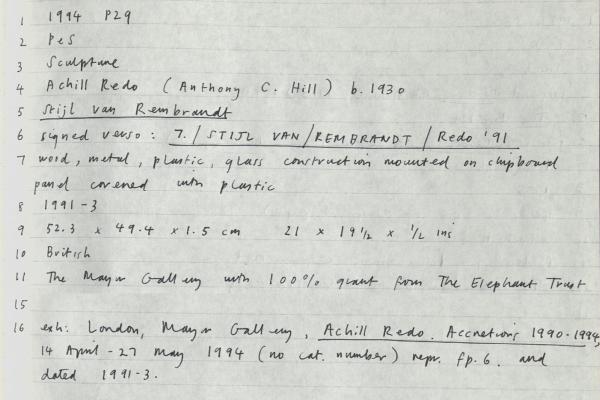 1 1994 P29
2 PeS
3 Sculpture
4 Achill Redo (Anthony C. Hill) b. 1930
5 Stijl van Rembrandt
6 signed verso: 7./STIJL VAN/REMBRANDT/Redo '91
7 wood, metal, plastic, glass construction mounted on chipboard
panel covered with plastic
8 1991-3
9 52.3 x 49.4 x 1.5 cm 21 x 19 1/2 x 1/2 ins
10 British
11 The Mayor Gallery with 100% grant from The Elephant Trust
15
16 exh: London, Mayor Gallery, Achill Redo. Accretions 1990-1994,
14 April - 27 May 1994 (no cat. number) repr. fp. 6. and
dated 1991-3.